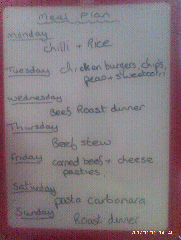 Meal Plan
Monday
chilli + Rice
Tuesday chicken burgers, chips,
peas + sweetcorn
Wednesday
Beef Roast dinner
Thursday
Beef stew
Friday corned beef + cheese
pasties
Saturday
pasta carbonara
Sunday
Roast dinner